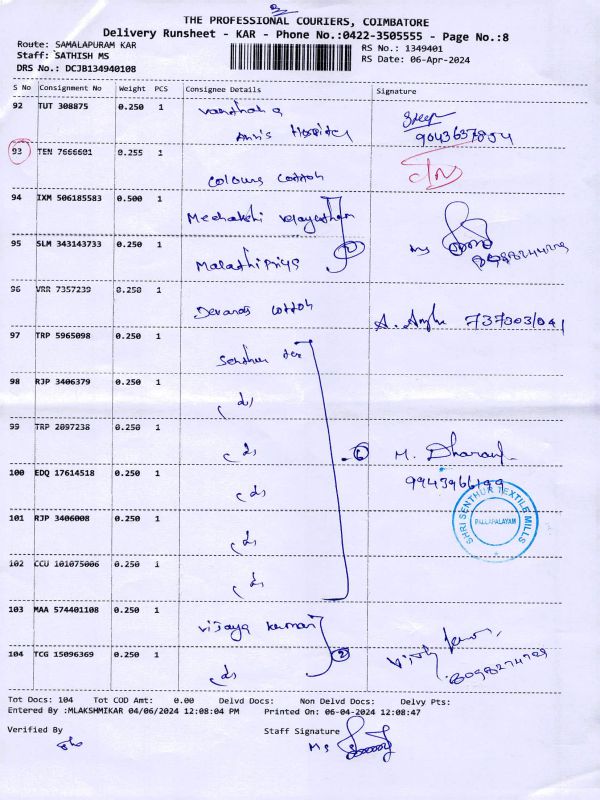 THE PROFESSIONAL COURIERS, COIMBATORE
Delivery Runsheet - KAR - Phone No.:0422-3505555 - Page No.:8
Route: SAMALAPURAM KAR
Staff: SATHISH MS
DRS No.: DCJB134940108
RS No.: 1349401
RS Date: 06-Apr-2024
S No Consignment No Weight PCS Consignee Details Signature
92 TUT 308875 0.250 1
9043637854
93 TEN 7666601 0.255 1
Colours cotton
94 IXM 506185583 0.500 1
Meenakshi
95 SLM 343143733 0.250 1
Malathi Priya
96 VRR 7357239 0.250 1
cotton
97 TRP 5965098 0.250 1
Senthur tex
98 RJP 3406379 0.250 1
99 TRP 2097238 0.250 1
6 M. Dharan
100 EDQ 17614518 0.250 1
9943966199
101 RJP 3406008 0.250 1
SHRI SENTHUR TEXTILE MILLS
PALLAPALAYAM
102 CCU 101075006 0.250 1
103 MAA 574401108 0.250 1
Vijaya kumari
104 TCG 15096369 0.250 1
2
Tot Docs: 104 Tot COD Amt: 0.00 Delvd Docs: Non Delvd Docs: Delvy Pts:
Entered By :MLAKSHMIKAR 04/06/2024 12:08:04 PM Printed On: 06-04-2024 12:08:47
Verified By Staff Signature
Ms